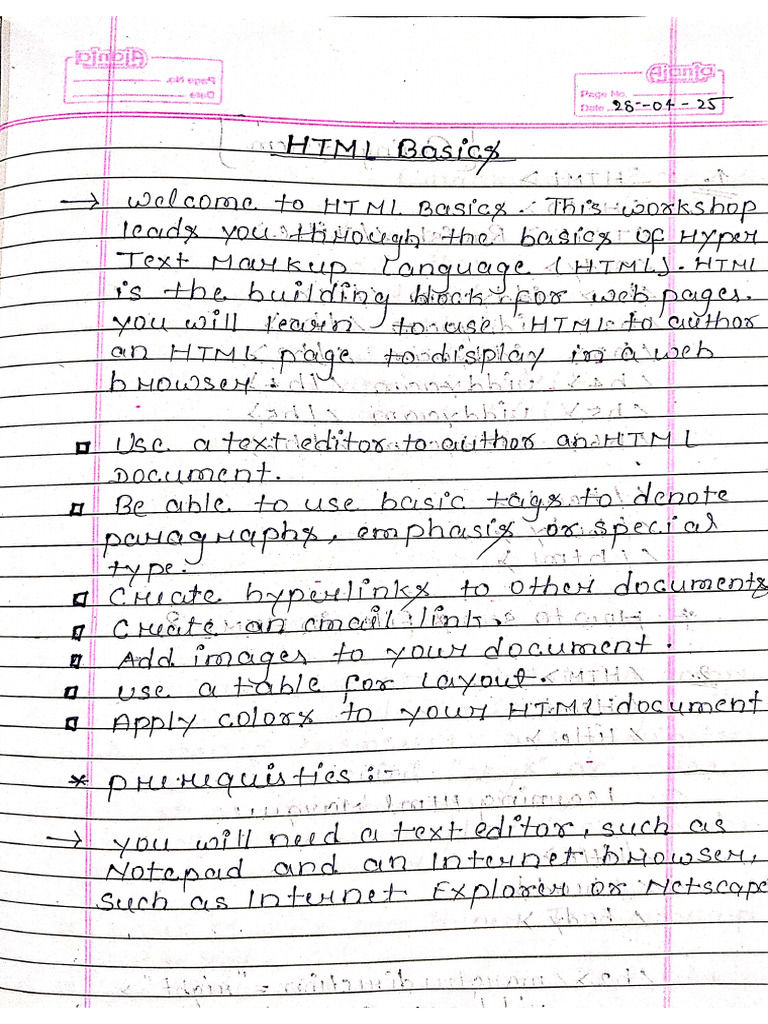 Ajanta
Page No.
Date 28-04-25
HTML Basics
→ Welcome to HTML Basics. This workshop
leads you through the basics of Hyper
Text Markup Language (HTML). HTML
is the building block for web pages.
you will learn to use HTML to author
an HTML page to display in a web
browser.
Use a text editor to author an HTML
Document.
Be able to use basic tags to denote
paragraphs, emphasis or special
type.
Create hyperlinks to other documents
Create an email link.
Add images to your document.
Use a table for layout.
Apply colors to your HTML document
* prerequisties :-
→ you will need a text editor, such as
Notepad and an Internet browser,
such as Internet Explorer or Netscape